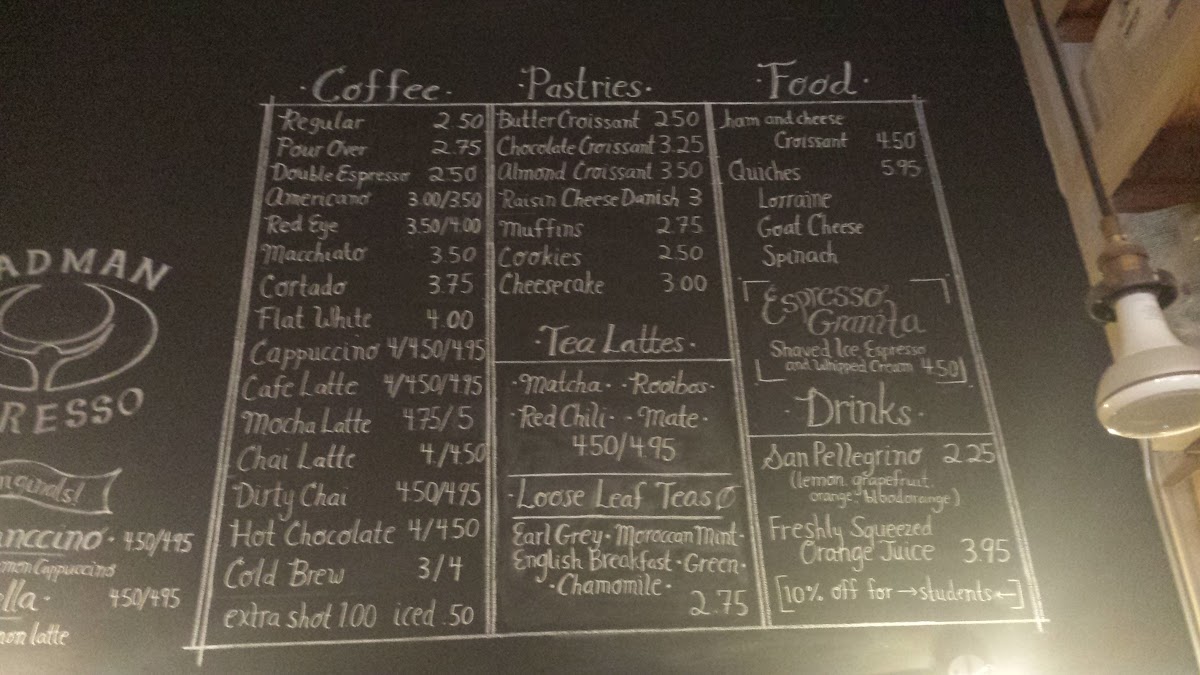 ADMAN
RESSO
450/495
Cappuccino
450/495
latte
· Coffee ·
Regular 2.50
Pour Over 2.75
Double Espresso 2.50
Americano 3.00/3.50
Red Eye 3.50/4.00
Macchiato 3.50
Cortado 3.75
Flat White 4.00
Cappuccino 4/4.50/4.95
Cafe Latte 4/4.50/4.95
Mocha Latte 4.75/5
Chai Latte 4/4.50
Dirty Chai 4.50/4.95
Hot Chocolate 4/4.50
Cold Brew 3/4
extra shot 1.00 iced .50
· Pastries ·
Butter Croissant 2.50
Chocolate Croissant 3.25
Almond Croissant 3.50
Raisin Cheese Danish 3
Muffins 2.75
Cookies 2.50
Cheesecake 3.00
· Tea Lattes ·
· Matcha · · Rooibos ·
· Red Chili · · Mate ·
4.50/4.95
· Loose Leaf Teas
Earl Grey · Moroccan Mint ·
English Breakfast · Green ·
· Chamomile ·
2.75
· Food ·
ham and cheese
Croissant 4.50
Quiches 5.95
Lorraine
Goat Cheese
Spinach
Espresso
Granita
Shaved Ice, Espresso
and Whipped Cream 4.50
· Drinks ·
San Pellegrino 2.25
(lemon, grapefruit,
orange, blood orange)
Freshly Squeezed
Orange Juice 3.95
[10% off for → students ←]